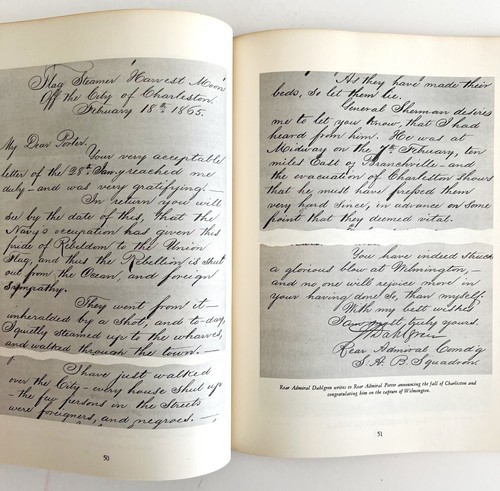 Flag Steamer Harvest Moon
Off the City of Charleston.
February 18th 1865.
My Dear Porter,
Your very acceptable
letter of the 28th Jany reached me
duly — and was very gratifying. —
In return you will
see by the date of this, that the
Navy's occupation has given this
pride of Rebeldom to the Union
Flag, and thus the Rebellion is shut
out from the Ocean, and foreign
Sympathy.
They went from it —
unheralded by a shot, and to-day,
I quietly steamed up to the wharves,
and walked through the town. —
I have just walked
over the City — every house shut up
— the few persons in the Streets
were foreigners, and negroes. —
50
As they have made their
beds, so let them lie.
General Sherman desires
me to let you know, that I had
heard from him. He was at
Midway on the 7th February, ten
miles East of Branchville — and
the evacuation of Charleston shows
that he must have pressed them
very hard since, in advance on some
point that they deemed vital.
You have indeed struck
a glorious blow at Wilmington, —
and no one will rejoice more in
your having done so, than myself.
With my best wishes
I am most truly yours.
JDahlgren
Rear Admiral Comd'g
S. A. B. Squadron.
Rear Admiral Dahlgren writes to Rear Admiral Porter announcing the fall of Charleston and
congratulating him on the capture of Wilmington.
51